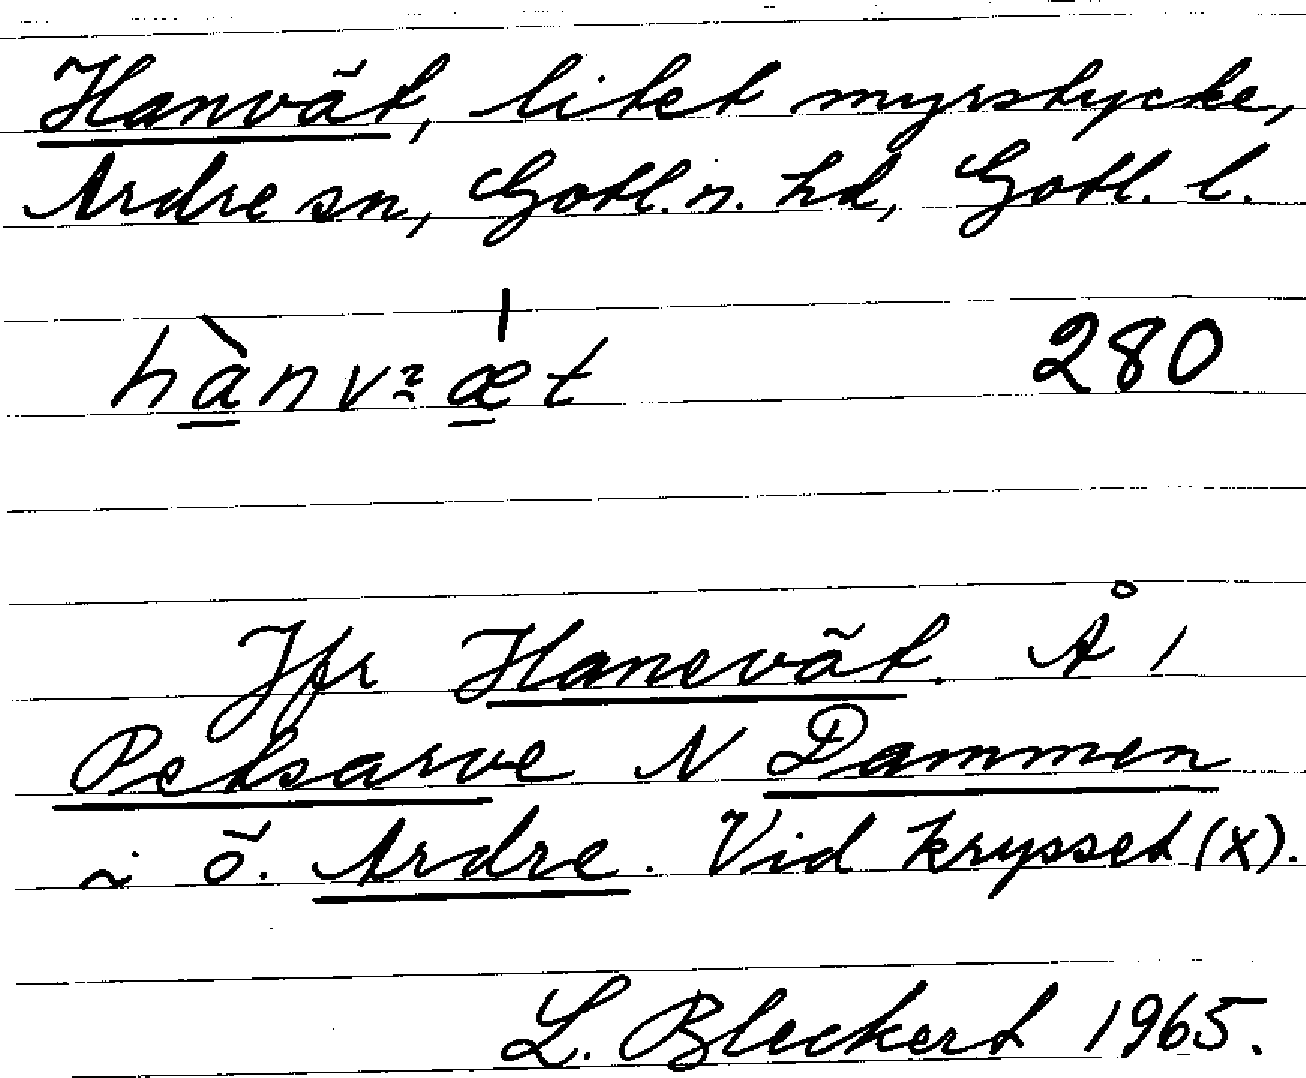 Hanvät, litet myrstycke,
Ardre sn, Gotl. n. hd, Gotl. l.
hànv²æ̍t 280
Jfr Hanevät. Å 1
Petsarve N Dammen
i ö. Ardre. Vid krysset (x).
L. Bleckert 1965.